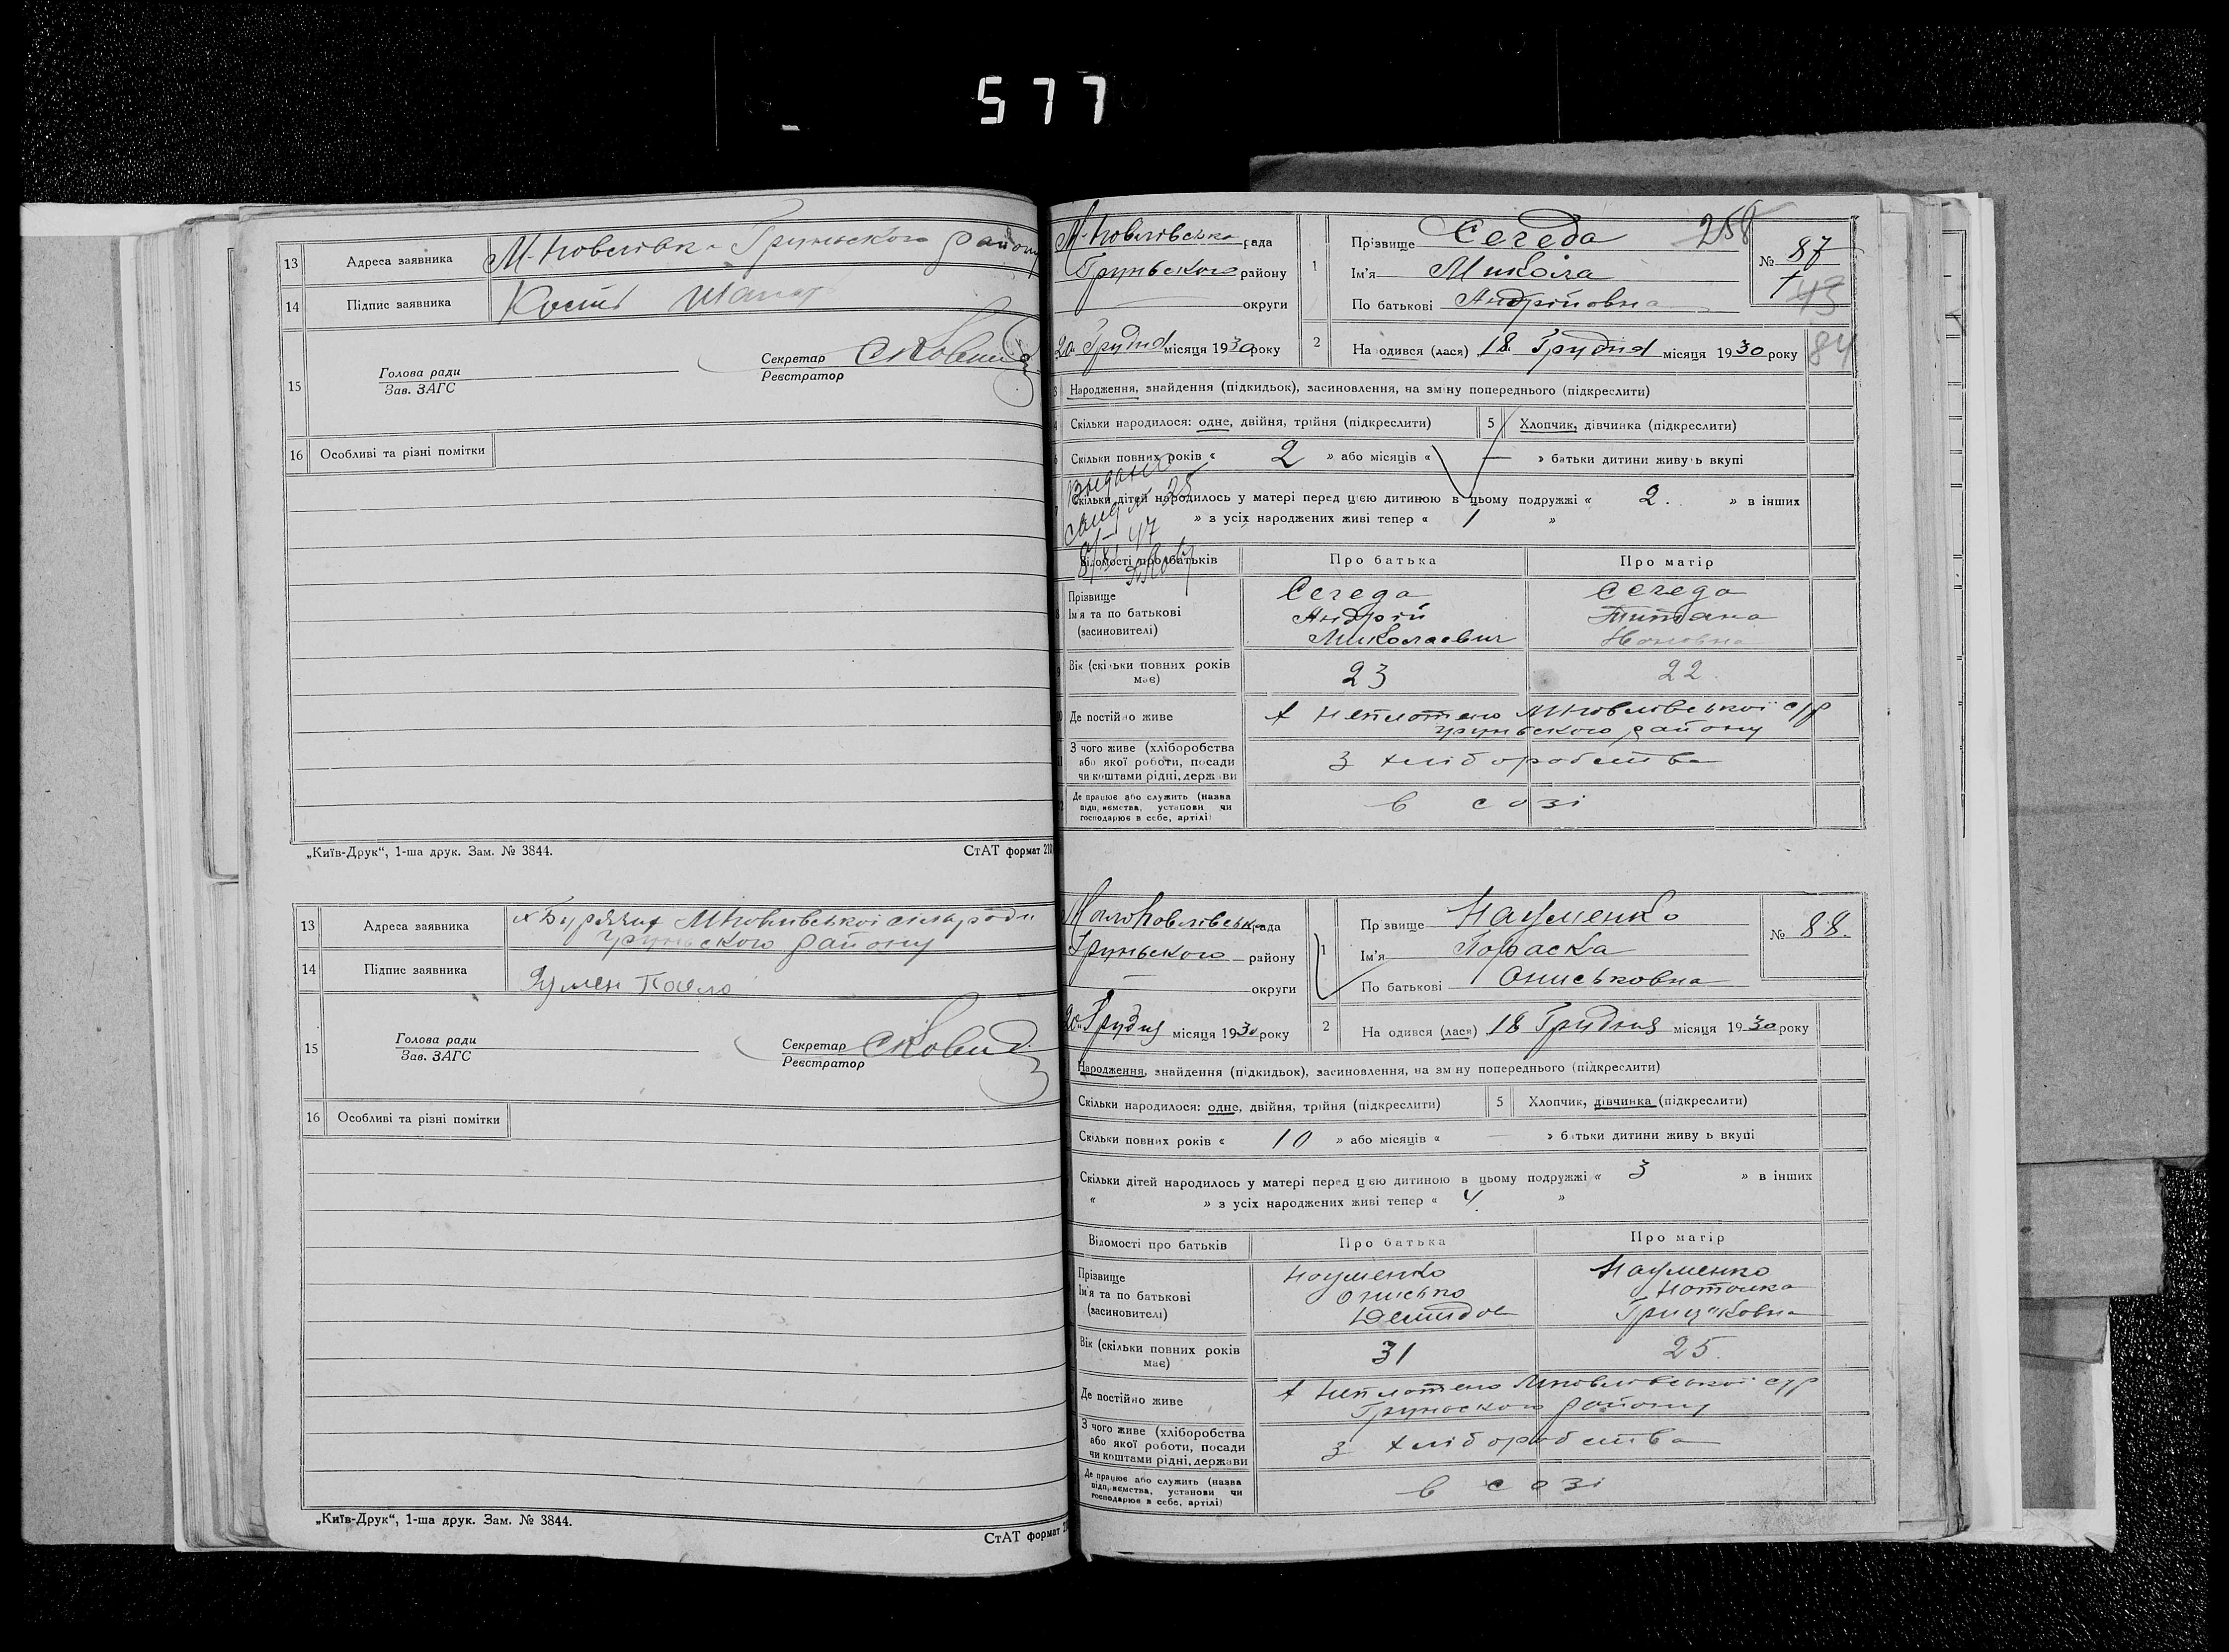 577
13 Адреса заявника М-Ковалівка Грунського району
14 Підпис заявника
15 Голова ради
Зав. ЗАГС
Секретар
Реєстратор
16 Особливі та різні помітки
„Київ-Друк“, 1-ша друк. Зам. № 3844.
СтАТ формат
13 Адреса заявника
Грунського району
14 Підпис заявника
15 Голова ради
Зав. ЗАГС
Секретар
Реєстратор
16 Особливі та різні помітки
„Київ-Друк“, 1-ша друк. Зам. № 3844.
СтАТ формат
рада
Грунського району
округи
20 Грудня місяця 1930 року
1 Прізвище Середа 258
Ім'я Микола
По батькові Андрійовна
№ 87
43
2 На одився (лася) 18 Грудня місяця 1930 року 84
Народження, знайдення (підкидьок), засиновлення, на зміну попереднього (підкреслити)
Скільки народилося: одне, двійня, трійня (підкреслити) 5 Хлопчик, дівчинка (підкреслити)
Скільки повних років « 2 » або місяців « — » батьки дитини живу ь вкупі
Скільки дітей народилось у матері перед цією дитиною в цьому подружжі « 2. » в інших
» з усіх народжених живі тепер « 1 »
Відомості про батьків Про батька Про матір
Прізвище Середа Середа
Ім'я та по батькові Андрій
(засиновителі) Миколаевич
Вік (скільки повних років має) 23 22.
Де постійно живе
Грунського району
З чого живе (хліборобства або якої роботи, посади чи коштами рідні, держави з хліборобства
Де працює або служить (назва підприємства, установи чи господарює в себе, артілі) в созі
Грунського району
округи
20 Грудня місяця 1930 року
1 Пр звище Науменко
Ім'я Параска
По батькові Ониськовна
№ 88.
2 На одився (лася) 18 Грудня місяця 1930 року
Народження, знайдення (підкидьок), засиновлення, на зм ну попереднього (підкреслити)
Скільки народилося: одне, двійня, трійня (підкреслити) 5 Хлопчик, дівчинка (підкреслити)
Скільки повних років « 10 » або місяців « — » батьки дитини живу ь вкупі
Скільки дітей народилось у матері перед цією дитиною в цьому подружжі « 3 » в інших
« » з усіх народжених живі тепер « 4. »
Відомості про батьків Про батька Про матір
Прізвище Науменко Науменко
Ім'я та по батькові Онисько Наталка
(засиновителі) Демидов Грицьковна
Вік (скільки повних років має) 31 25.
Де постійно живе
Грунського району
З чого живе (хліборобства або якої роботи, посади чи коштами рідні, держави з хліборобства
Де працює або служить (назва підприємства, установи чи господарює в себе, артілі) в созі